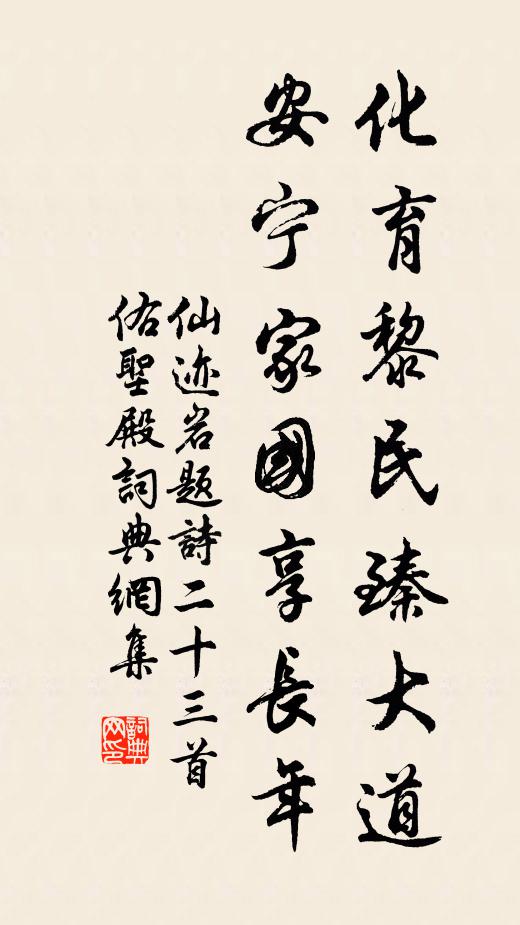 化育黎民臻大道
安宁家國享長年
仙迹岩题詩二十三首
佑聖殿詞典網集
詞典網印